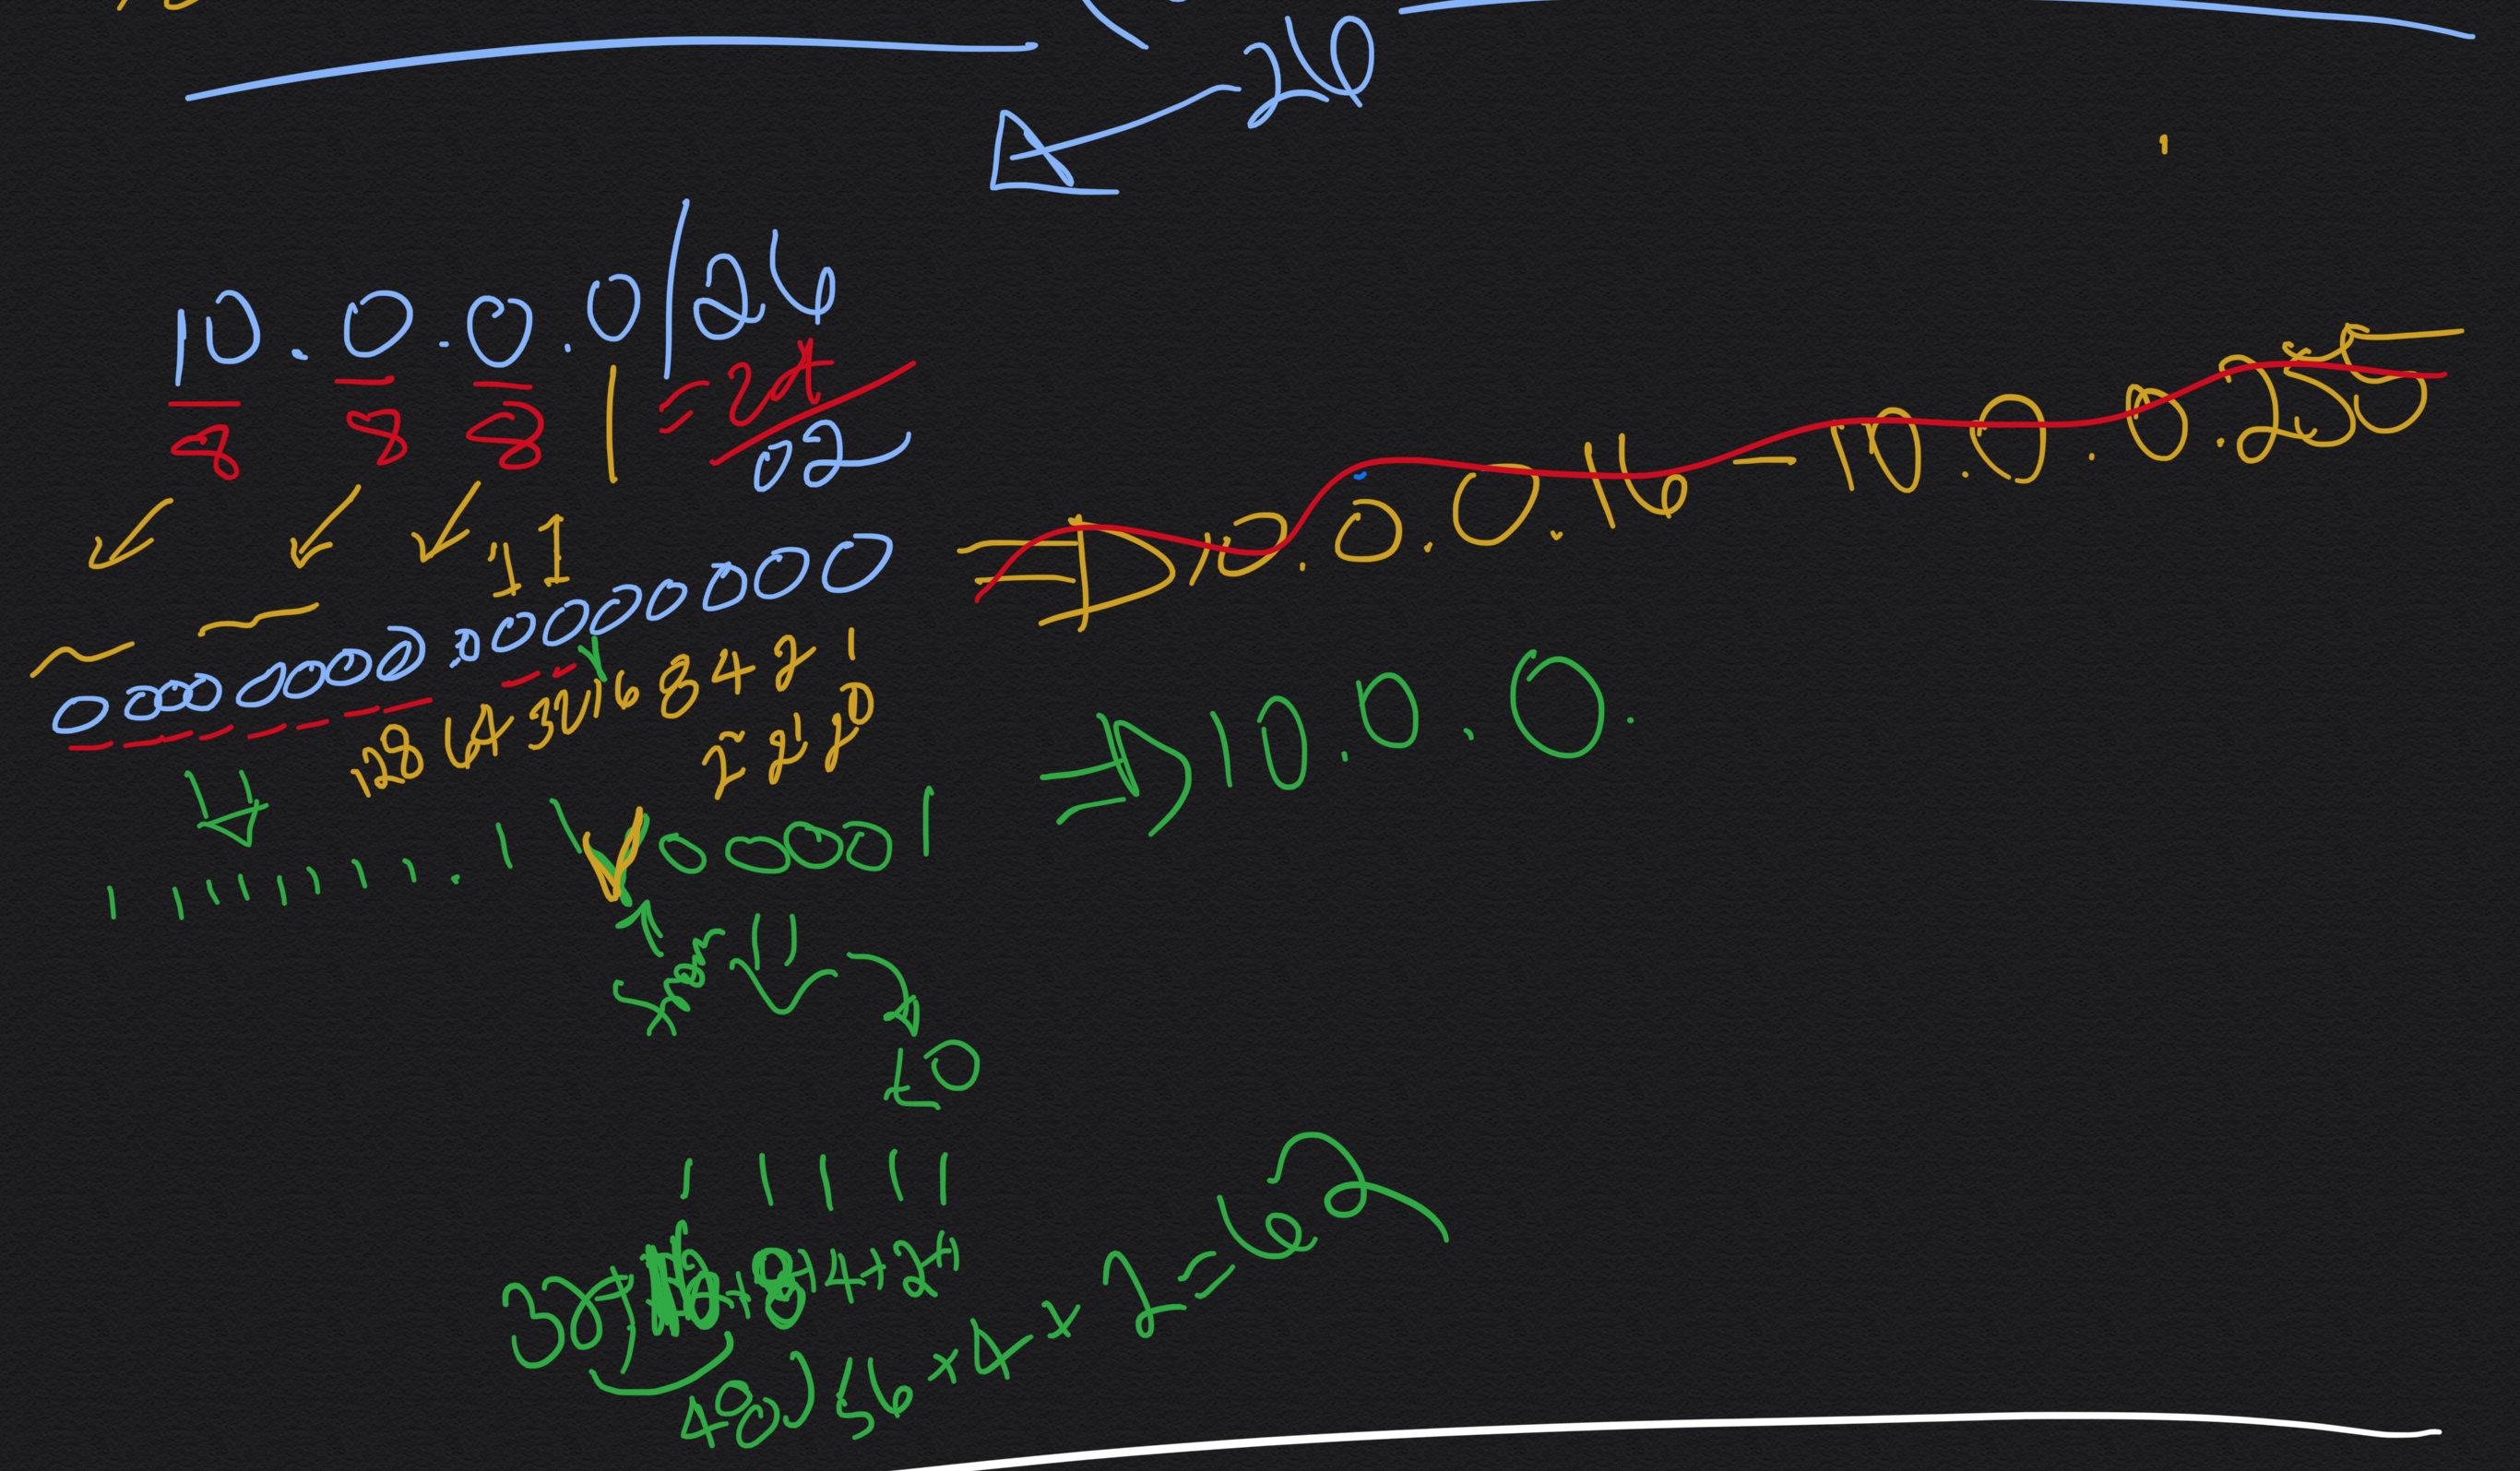 26
10.0.0.0/26
8 8 8 = 24
02
1 1
00000000.00000000
=> 10.0.0.16 - 10.0.0.255
128 64 32 16 8 4 2 1
2² 2¹ 2⁰
=> 10.0.0.
11111111.11
00001
from
to
1 1 1 1 1
32+16+8+4+2+1
48) 56 + 4 + 2 = 62